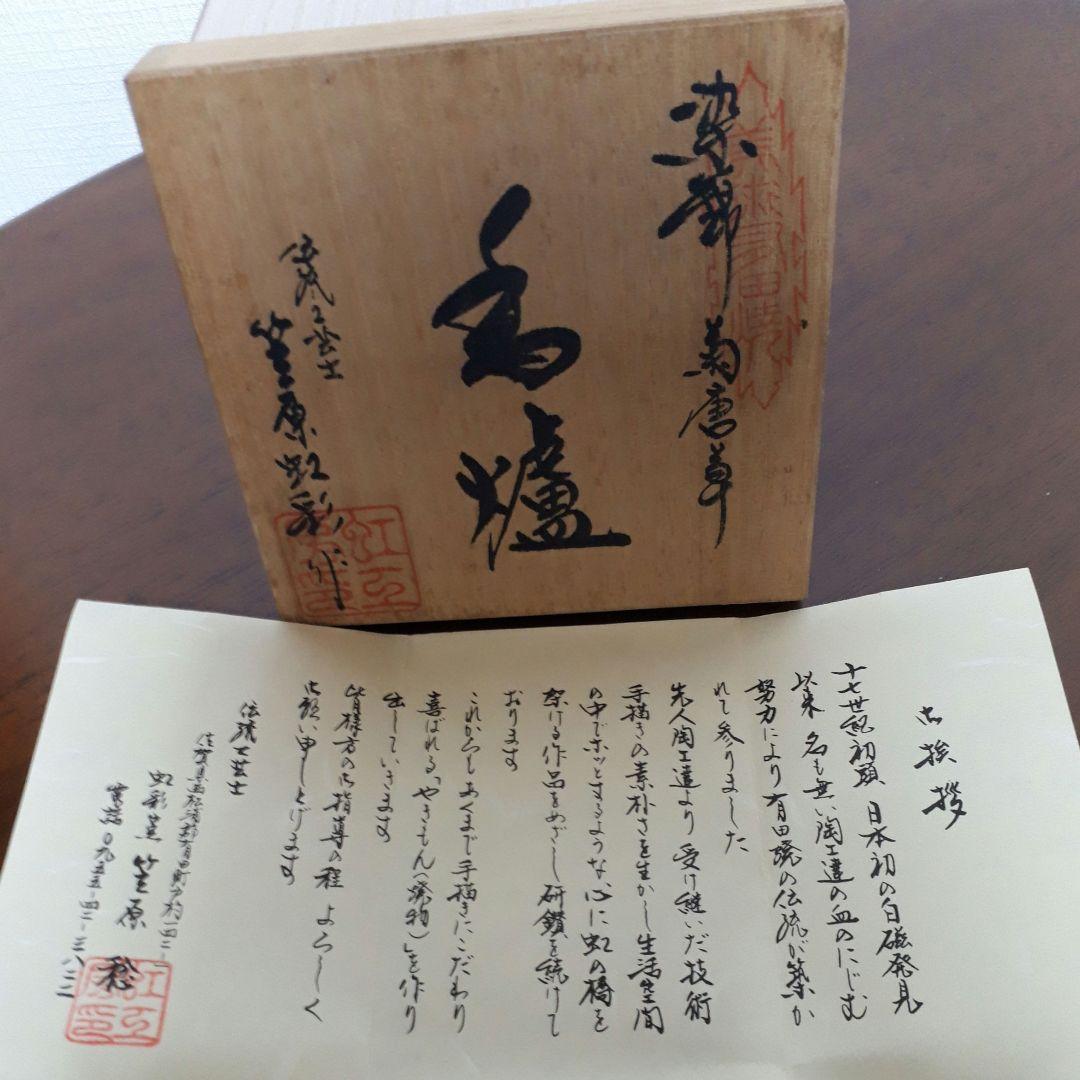 染錦 菊唐草
香爐
伝統工芸士
笠原虹彩作
御挨拶
十七世紀初頭 日本初の白磁発見
以来 名も無い陶工達の血のにじむ
努力により 有田焼の伝統が築か
れて参りました
先人陶工達より受け継いだ技術
手描きの素朴さを生かし生活空間
の中でホッとするような心に虹の橋を
架ける作品をめざし研鑽を続けて
おります
これからもあくまで手描きにこだわり
喜ばれる「やきもん(焼物)」を作り
出していきます
皆様方の御指導の程 よろしく
御願い申し上げます
伝統工芸士
佐賀県西松浦郡有田町
虹彩葉 笠原 稔
電話〇九五五-四二-三八三三